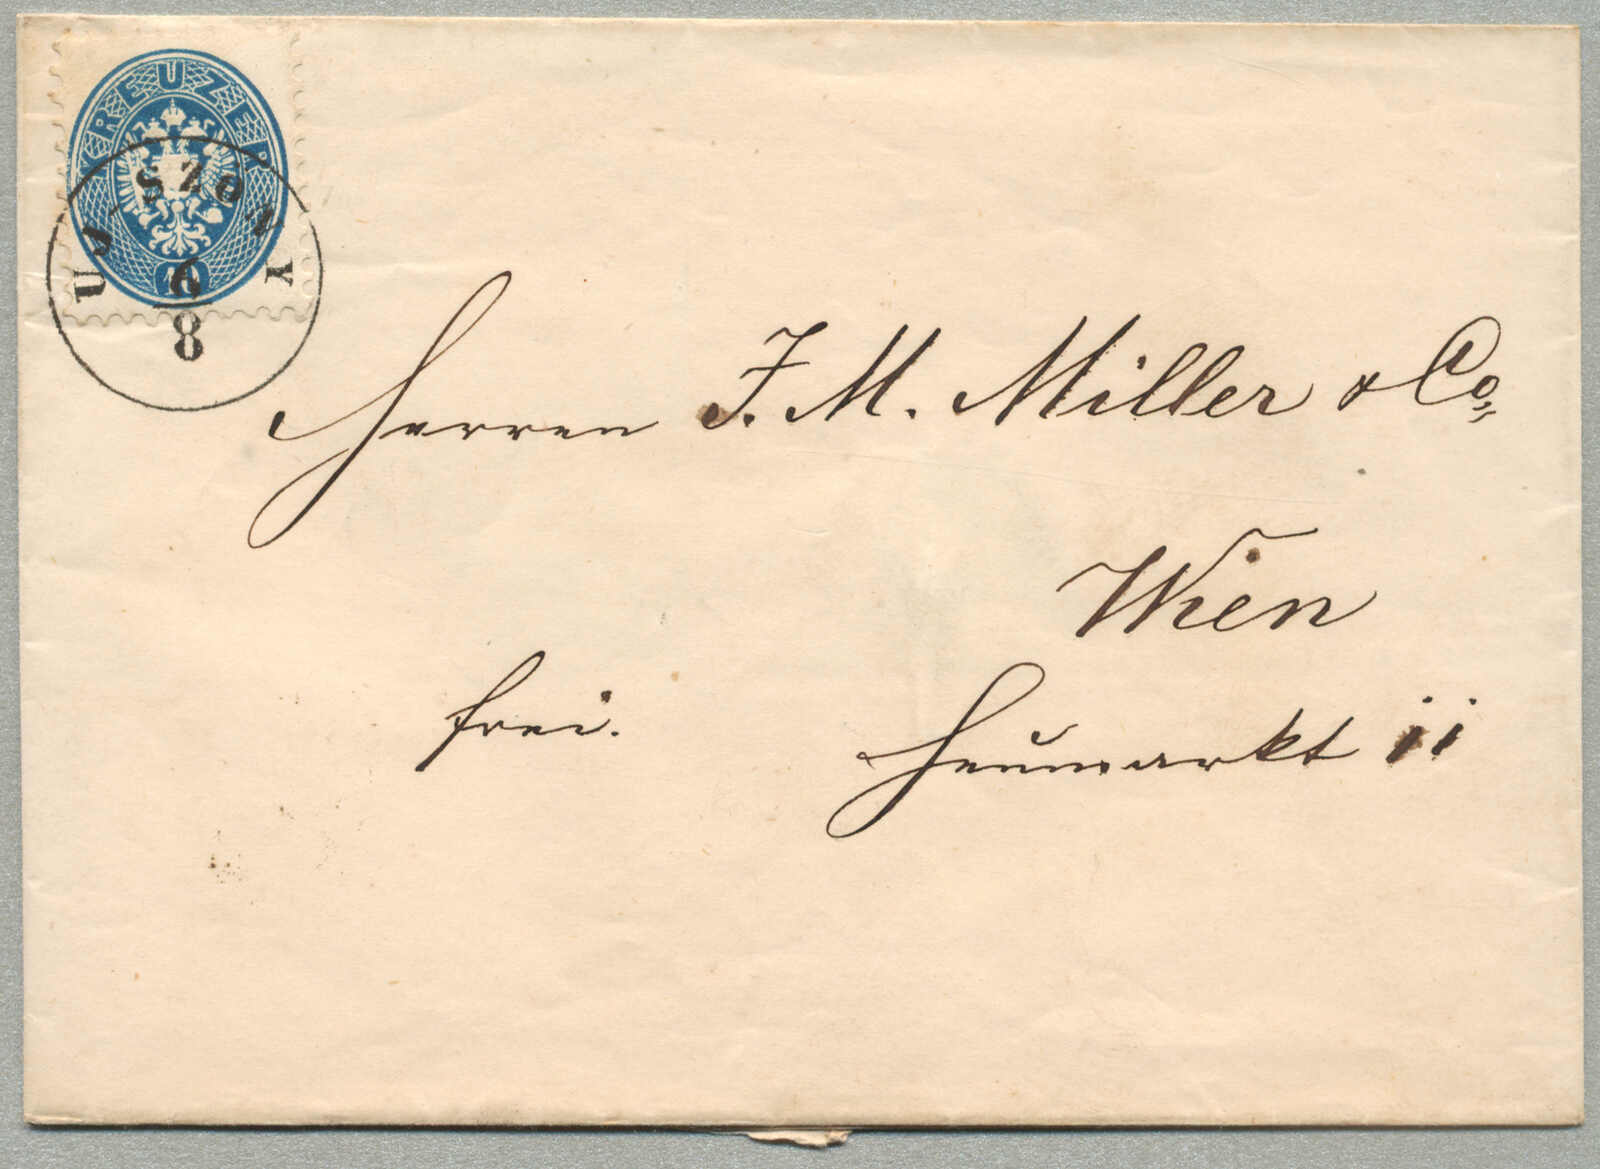 KREUZER
10
UJ-SZÖNY
6
8
Herren J. M. Miller & Co,
Wien
frei.
Heumarkt 11